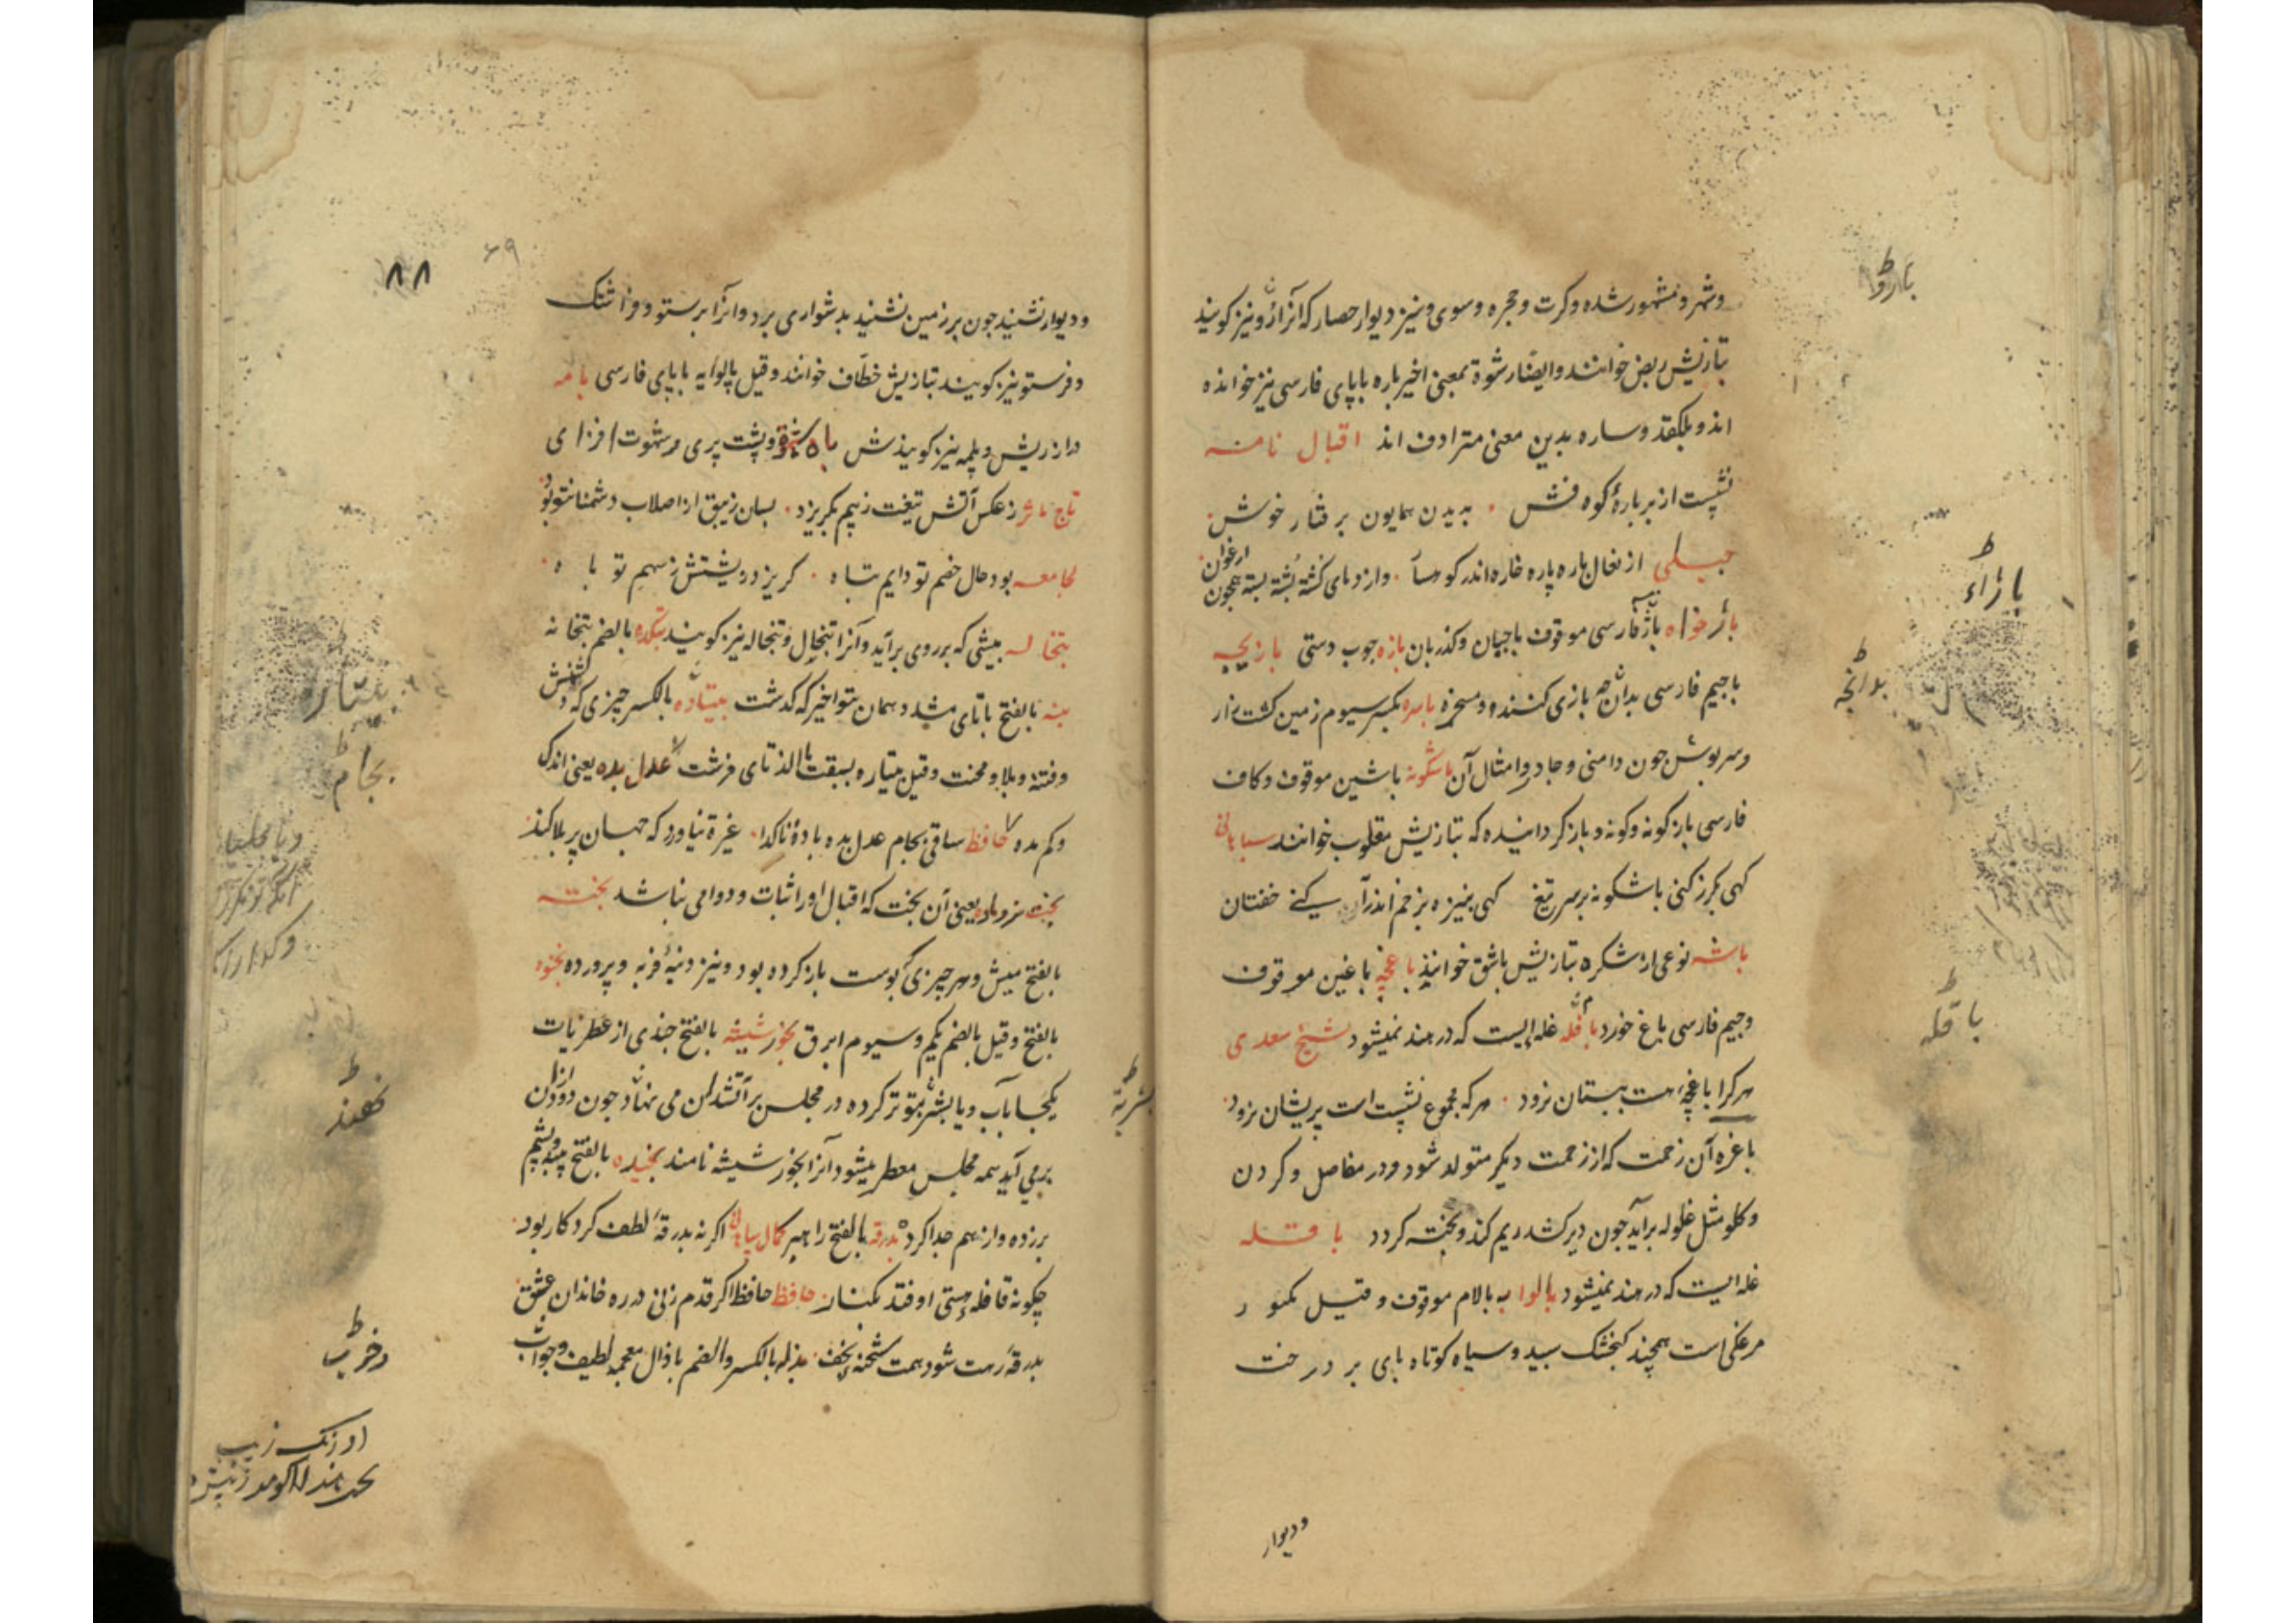 و شهر و مشهور شده و کرت و حجره و سوی و نیز دیوار حصار که آنرا باروُ نیز کویند
بتازیش ربض خوانند و ایضا رشوة بمعنی اخیر باره بابای فارسی نیز خوانده
اند و بلکفد و ساره بدین معنی مترادف اند اقبال نامه
نشست از بر بارۀ کوه فش بدیدن همایون برفتار خوش
جبلی از نعال باره پاره خاره اندر کوهسار وازدمای کشته پشته بسته همچون ارغوان
باژخواه باژ فارسی موقوف باجبان و کذربان بازه جوب دستی بازیچه
باجیم فارسی بدانچه بازی کنند و مسخره باسره بکسر سیوم زمین کشت زار
و سربوش جون دامنی و جادر و امثال آن باشکونه باشین موقوف و کاف
فارسی بازکونه و کونه و بازکردانیده که بتازیش مقلوب خوانند سباهانی
کهی بکرز کنی باشکونه بر سر تیغ کهی بنیزه بزخم اندر آن کنی خفتان
باشه نوعی از شکره بتازیش باشق خوانند باغچه باغین موقوف
و جیم فارسی باغ خورد باقله غله ایست که در هند نمیشود شیخ سعدی
هرکرا باغچه هست ببستان نرود هرکه مجموع نشست است پریشان نرود
باغره آن زحمت که از زحمت دیکر متولد شود و در مفاصل و کردن
و کلو مثل غلوله برآید جون دیر کشد ریم کند و پخته کردد باقله
غله ایست که در هند نمیشود بالوایه بالام موقوف و قیل بکسور
مرغکی است همچند کنجشک سبید و سیاه کوتاه بای بر درخت
و دیوار
باروُ
باقله
۸۸
۶۹
و دیوار نشیند جون بر زمین نشنید بدشواری برد و آنرا برستو و فراشتک
و فرستو نیز کویند بتازیش خطاف خوانند و قیل پالوایه بابای فارسی بامه
دراز ریش و بلمه نیز کویندش باه و پشت پری و شهوت افزای
تاج ماثر ز عکس آتش تیغت ز بیم بکریزد بسان زیبق از اصلاب دشمنانت
لجامعه بود حال خصم تو دایم تباه کریزد ز پشتش ز سهم تو باه
بتخاله بیشی که بر روی برآید و آنرا تبخال و تبخاله نیز کویند بتکده بالضم بتخانه
بته بالفتح باتای مشدد همان بتو اخیر که کدشت بیتاره بالکسر چیزی که
و فتنه و بلا و محنت و قیل بتیاره بسبقت تای فرشت عدل بده یعنی اندک
و کم مده حافظ ساقی بجام عدل بده باده تا کدا غیرة نیاورد که جهان پر بلا کند
بخت نر و ماده یعنی آن بخت که اقبال او را ثبات و دوامی نباشد بخته
بالفتح میش و هر چیزی که پوست باز کرده بود و نیز دنبۀ فربه و پرورده بخنوه
بالفتح و قیل بالضم یکم و سیوم ابرق بخور شیشه بالفتح جندی از عطریات
یکجا بآب و یا بشربتو تر کرده در مجلس بر آتشدان می نهاد جون دود از آن
برمی آید همه مجلس معطر میشود آنرا بخور شیشه نامند بخیده بالفتح پنبه و پشم
برزده و از هم جدا کرده بدرقه بالفتح راهبر کمال سباهانی اکر نه بدرقۀ لطف کردکار بود
چکونه قافله هستی اوفتد بکنار حافظ حافظا اکر قدم زنی در ره خاندان عشق
بدرقه رهت شود همت شحنه نجف بذله بالکسر و الضم باذال معجمه لطیف و جواب
بتیاره
بجام
اورنک زیب